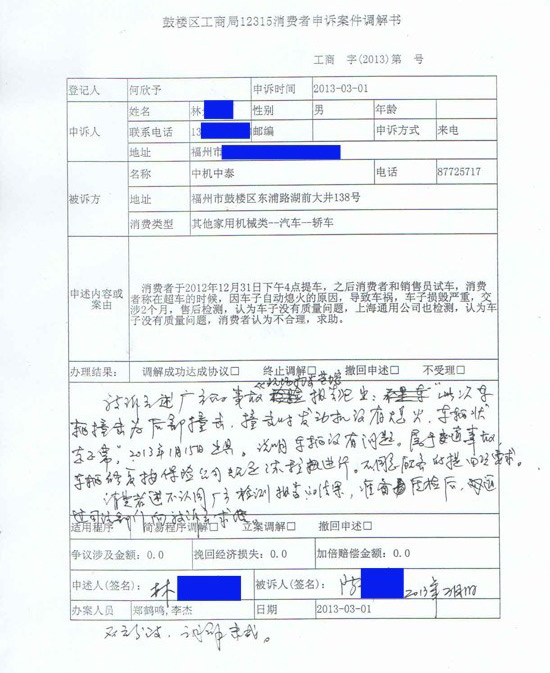 鼓楼区工商局12315消费者申诉案件调解书
工商 字(2013)第 号
登记人 何欣予 申诉时间 2013-03-01
申诉人 姓名 林 性别 男 年龄
联系电话 13 邮编 申诉方式 来电
地址 福州市
被诉方 名称 中机中泰 电话 87725717
地址 福州市鼓楼区东浦路湖前大井138号
消费类型 其他家用机械类--汽车--轿车
申述内容或案由
消费者于2012年12月31日下午4点提车，之后消费者和销售员试车，消费
者称在超车的时候，因车子自动熄火的原因，导致车祸，车子损毁严重，交
涉2个月，售后检测，认为车子没有质量问题，上海通用公司也检测，认为车
子没有质量问题，消费者认为不合理，求助。
办理结果： 调解成功达成协议□ 终止调解□ 撤回申述□ 不受理□
被诉方 事故 报告 此次车
辆撞击为后部撞击，撞击时发动机没有熄火，车辆状
态正常”，2013年1月15日 说明车辆没有问题。属于交通事故，
车辆修复按保险公司规定 进行。不同意顾客的 要求。
消费者 不认同厂方检测报告的结果，准备 质检后，
司法部门向被诉方求偿。
适用程序 简易程序调解□ 立案调解□ 撤回申述□
争议涉及金额：0.0 挽回经济损失：0.0 加倍赔偿金额：0.0
申述人(签名)： 林 被诉人(签名)： 2013年3月1日
办案人员 郑鹤鸣,李杰 日期 2013-03-01
双方分歧，调解未成。